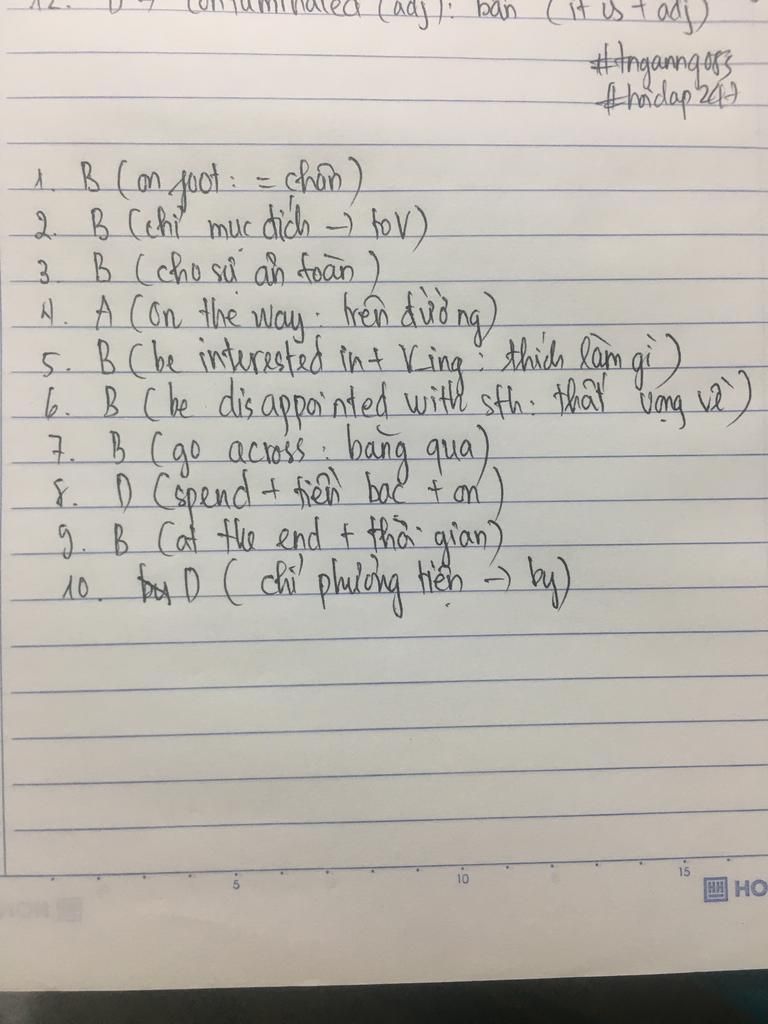 12. D → contaminated (adj): bẩn (it is + adj)
#tnganng083
#hoidap247
1. B (on foot: = chân)
2. B (chỉ mục đích → to V)
3. B (cho sự an toàn)
4. A (on the way: trên đường)
5. B (be interested in + Ving: thích làm gì)
6. B (be disappointed with sth: thất vọng về)
7. B (go across: băng qua)
8. D (spend + tiền bạc + on)
9. B (at the end + thời gian)
10. D (chỉ phương tiện → by)
5 10 15
HO